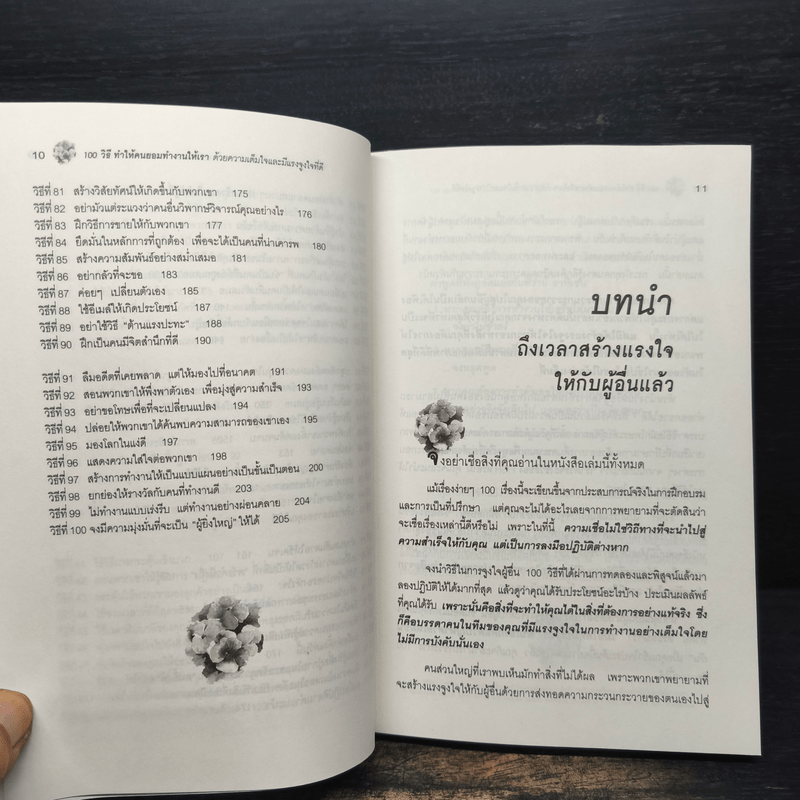 10 100 วิธี ทำให้คนยอมทำงานให้เรา ด้วยความเต็มใจและมีแรงจูงใจที่ดี
วิธีที่ 81 สร้างวิสัยทัศน์ให้เกิดขึ้นกับพวกเขา 175
วิธีที่ 82 อย่ามัวแต่ระแวงว่าคนอื่นวิพากษ์วิจารณ์คุณอย่างไร 176
วิธีที่ 83 ฝึกวิธีการขายให้กับพวกเขา 177
วิธีที่ 84 ยึดมั่นในหลักการที่ถูกต้อง เพื่อจะได้เป็นคนที่น่าเคารพ 180
วิธีที่ 85 สร้างความสัมพันธ์อย่างสม่ำเสมอ 181
วิธีที่ 86 อย่ากลัวที่จะขอ 183
วิธีที่ 87 ค่อยๆ เปลี่ยนตัวเอง 185
วิธีที่ 88 ใช้อีเมล์ให้เกิดประโยชน์ 187
วิธีที่ 89 อย่าใช้วิธี "ต้านแรงปะทะ" 188
วิธีที่ 90 ฝึกเป็นคนมีจิตสำนึกที่ดี 190
วิธีที่ 91 ลืมอดีตที่เคยพลาด แต่ให้มองไปที่อนาคต 191
วิธีที่ 92 สอนพวกเขาให้พึ่งพาตัวเอง เพื่อมุ่งสู่ความสำเร็จ 193
วิธีที่ 93 อย่าขอโทษเพื่อที่จะเปลี่ยนแปลง 194
วิธีที่ 94 ปล่อยให้พวกเขาได้ค้นพบความสามารถของเขาเอง 195
วิธีที่ 95 มองโลกในแง่ดี 197
วิธีที่ 96 แสดงความใส่ใจต่อพวกเขา 198
วิธีที่ 97 สร้างการทำงานให้เป็นแบบแผนอย่างเป็นขั้นเป็นตอน 200
วิธีที่ 98 ยกย่องให้รางวัลกับคนที่ทำงานดี 203
วิธีที่ 99 ไม่ทำงานแบบเร่งรีบ แต่ทำงานอย่างผ่อนคลาย 204
วิธีที่ 100 จงมีความมุ่งมั่นที่จะเป็น "ผู้ยิ่งใหญ่" ให้ได้ 205
11
บทนำ
ถึงเวลาสร้างแรงใจ
ให้กับผู้อื่นแล้ว
จงอย่าเชื่อสิ่งที่คุณอ่านในหนังสือเล่มนี้ทั้งหมด
แม้เรื่องง่ายๆ 100 เรื่องนี้จะเขียนขึ้นจากประสบการณ์จริงในการฝึกอบรม
และการเป็นที่ปรึกษา แต่คุณจะไม่ได้อะไรเลยจากการพยายามที่จะตัดสินว่า
จะเชื่อเรื่องเหล่านี้ดีหรือไม่ เพราะในที่นี้ ความเชื่อไม่ใช่วิถีทางที่จะนำไปสู่
ความสำเร็จให้กับคุณ แต่เป็นการลงมือปฏิบัติต่างหาก
จงนำวิธีในการจูงใจผู้อื่น 100 วิธีที่ได้ผ่านการทดลองและพิสูจน์แล้วมา
ลองปฏิบัติให้ได้มากที่สุด แล้วดูว่าคุณได้รับประโยชน์อะไรบ้าง ประเมินผลลัพธ์
ที่คุณได้รับ เพราะนั่นคือสิ่งที่จะทำให้คุณได้ในสิ่งที่ต้องการอย่างแท้จริง ซึ่ง
ก็คือบรรดาคนในทีมของคุณที่มีแรงจูงใจในการทำงานอย่างเต็มใจโดย
ไม่มีการบังคับนั่นเอง
คนส่วนใหญ่ที่เราพบเห็นมักทำสิ่งที่ไม่ได้ผล เพราะพวกเขาพยายามที่
จะสร้างแรงจูงใจให้กับผู้อื่นด้วยการส่งทอดความกระวนกระวายของตนเองไปสู่